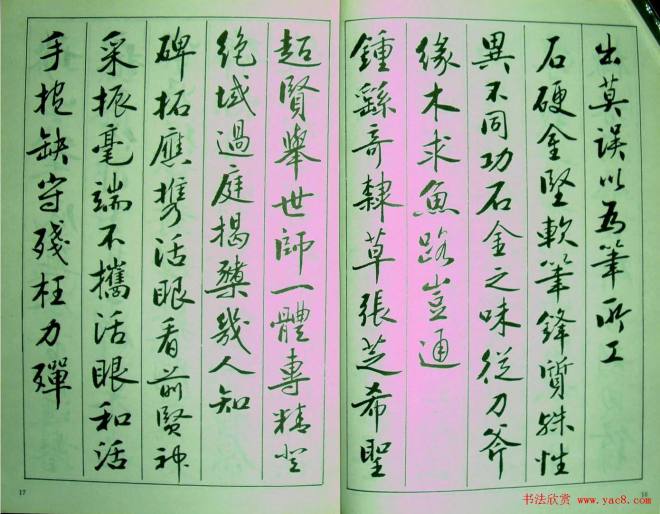 出莫误以为笔所工
石硬金坚软笔锋质殊性
異不同功石金之味從刀斧
缘木求魚路豈通
鍾繇奇隸草張芝希聖
超賢舉世師一體專精登
绝域過庭揭櫫幾人知
碑拓應携活眼看前賢神
采振毫端不攜活眼和活
手抱缺守殘枉力殫
17
18
书法欣赏 www.yac8.com